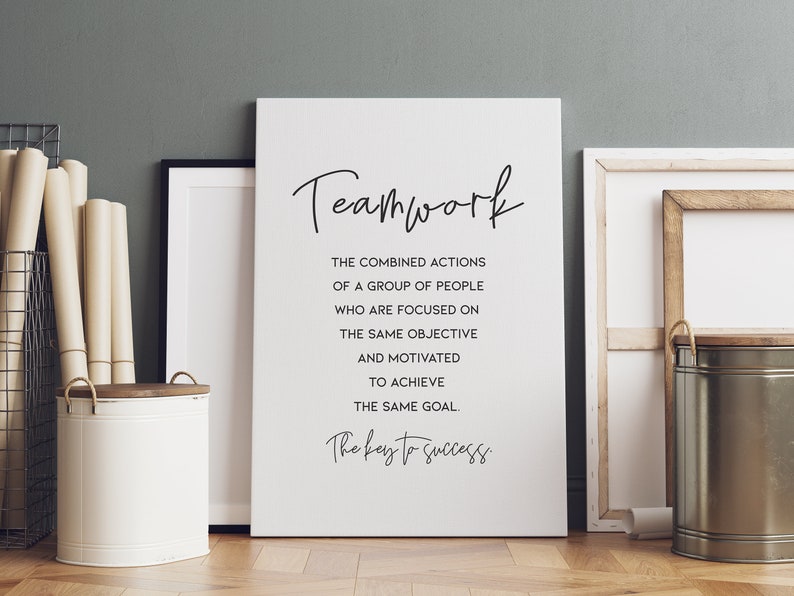 Teamwork
THE COMBINED ACTIONS
OF A GROUP OF PEOPLE
WHO ARE FOCUSED ON
THE SAME OBJECTIVE
AND MOTIVATED
TO ACHIEVE
THE SAME GOAL.
The key to success.